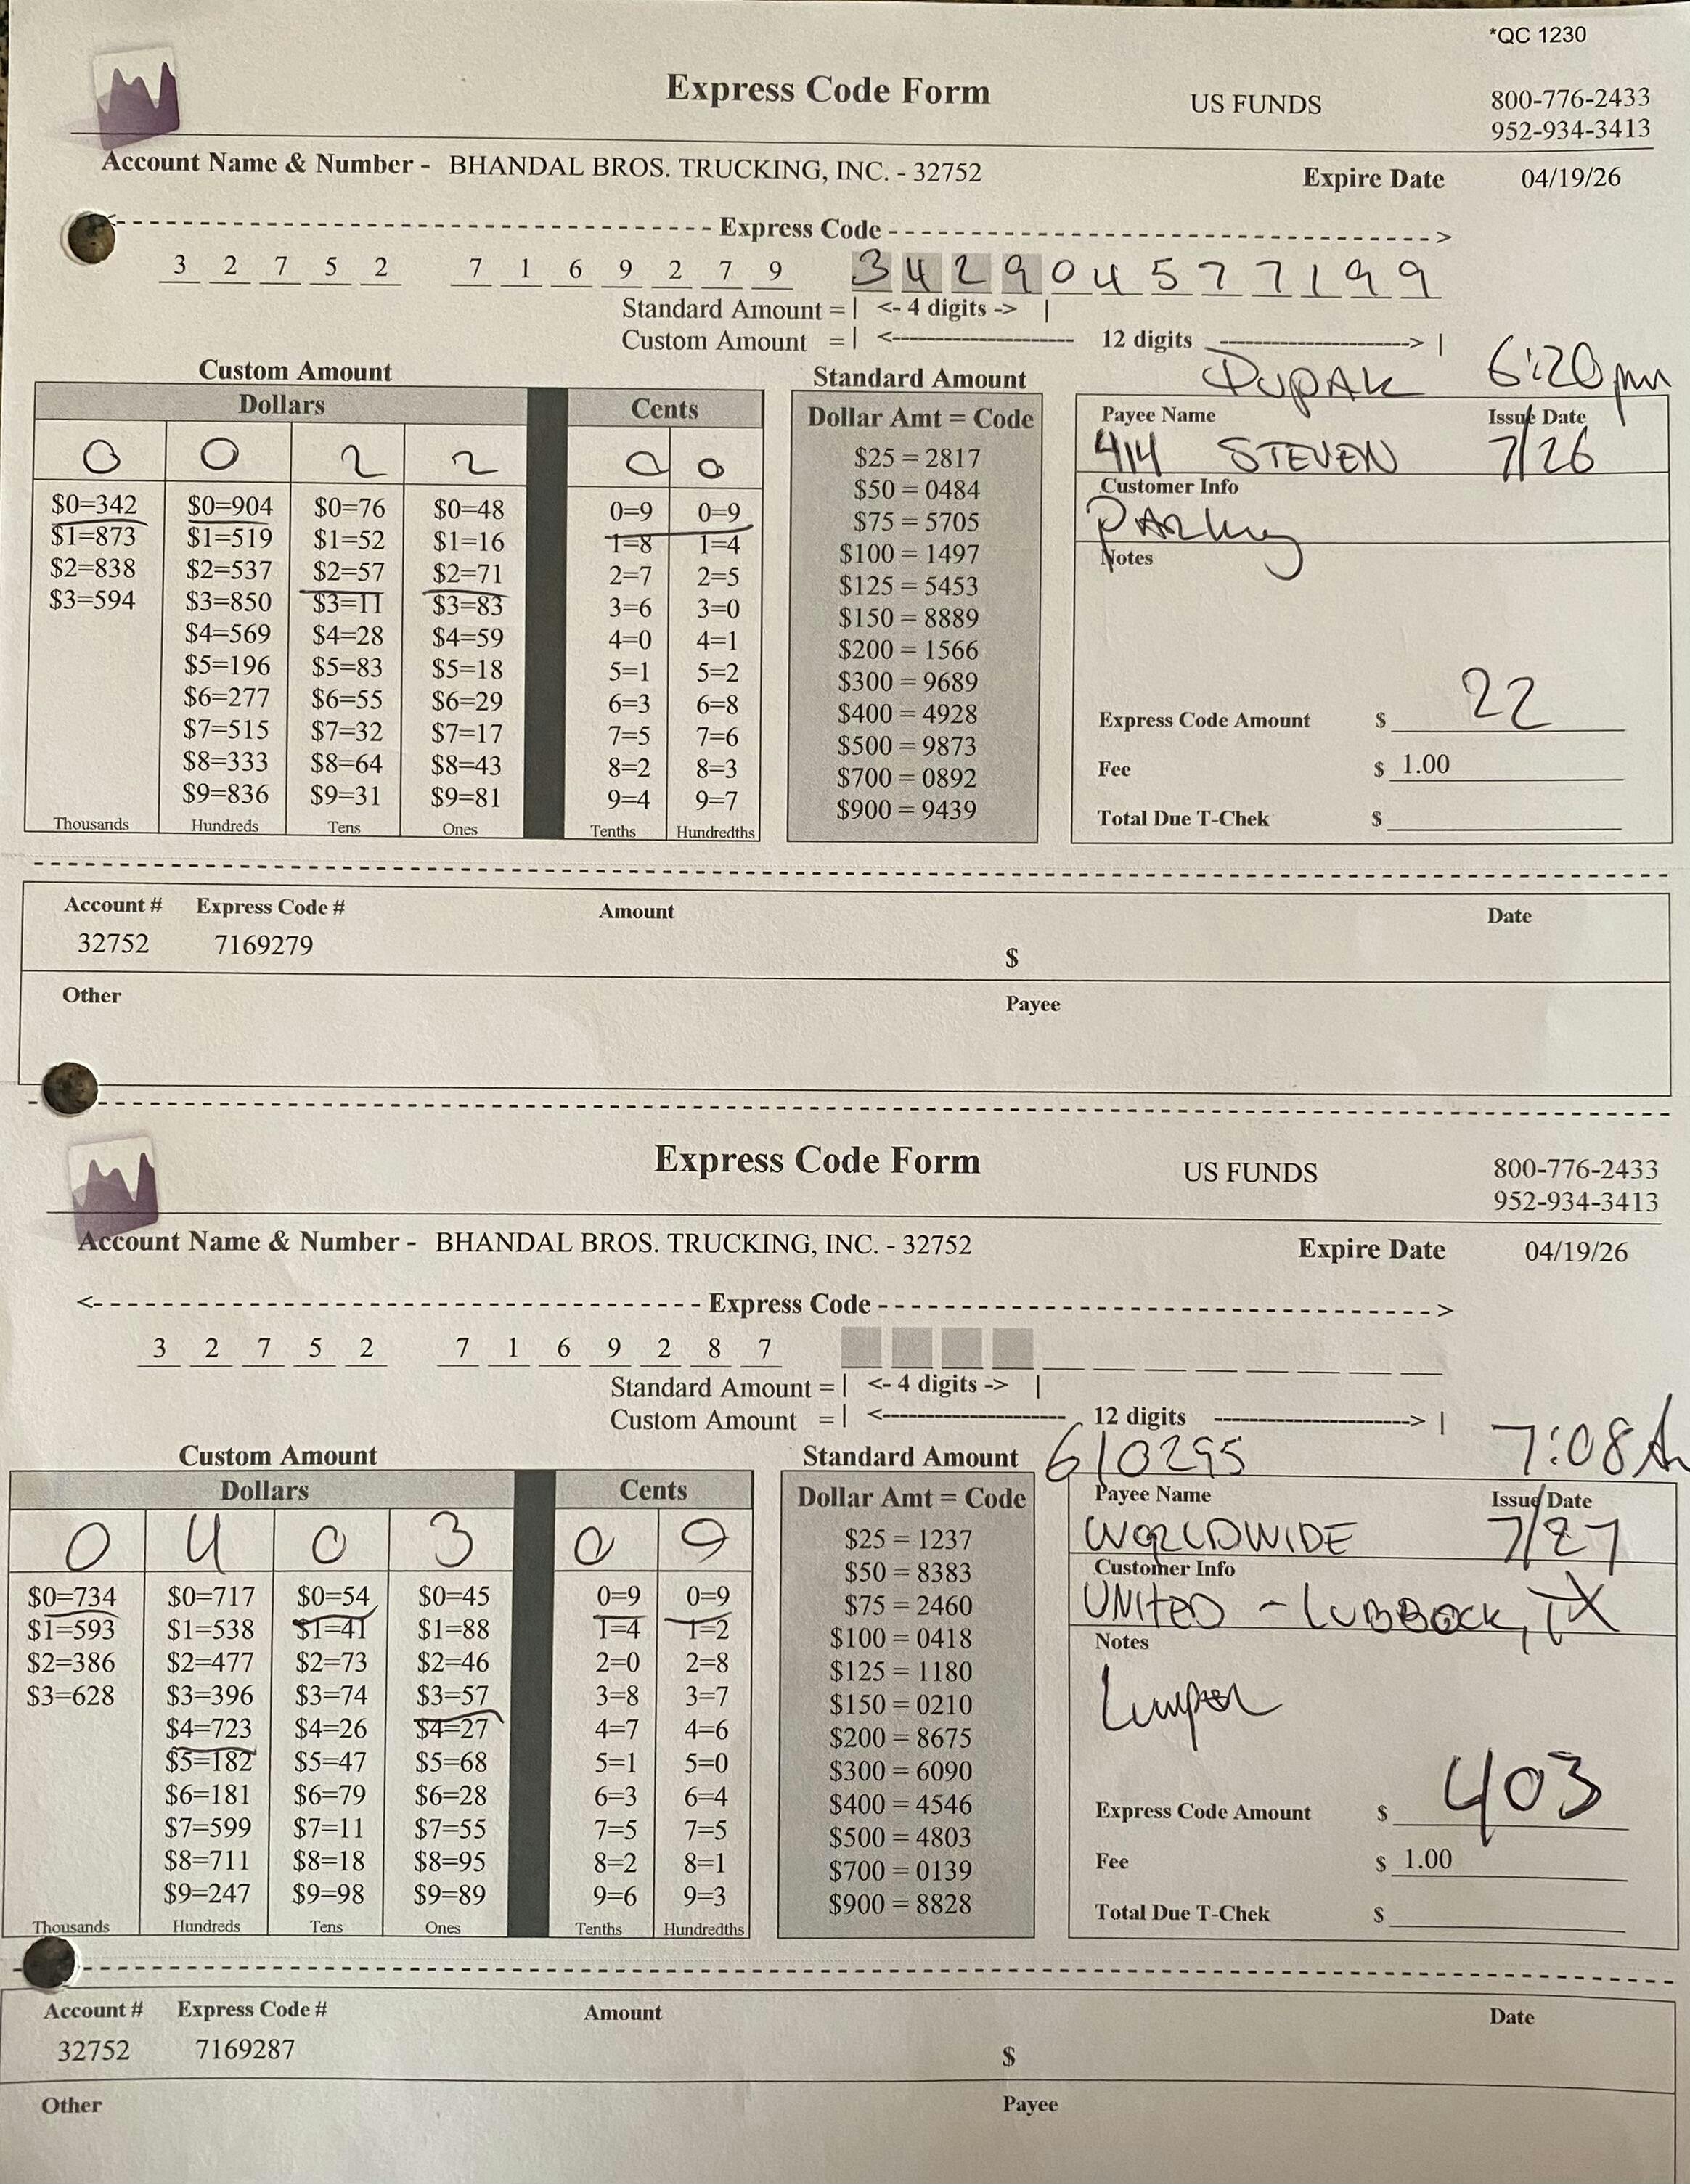 *QC 1230
Express Code Form US FUNDS 800-776-2433
952-934-3413
Account Name & Number - BHANDAL BROS. TRUCKING, INC. - 32752 Expire Date 04/19/26
<- Express Code ->
3 2 7 5 2 7 1 6 9 2 7 9 3 4 2 9 0 4 5 7 7 1 9 9
Standard Amount = | <- 4 digits -> |
Custom Amount = | <- 12 digits -> |
DUPAK 6:20pm
Custom Amount Standard Amount
Dollars Cents Dollar Amt = Code Payee Name Issue Date
0 0 2 2 0 0 414 STEVEN 7/26
Customer Info
Parking
Notes
$0=342 $0=904 $0=76 $0=48 0=9 0=9 $25 = 2817
$1=873 $1=519 $1=52 $1=16 1=8 1=4 $50 = 0484
$2=838 $2=537 $2=57 $2=71 2=7 2=5 $75 = 5705
$3=594 $3=850 $3=11 $3=83 3=6 3=0 $100 = 1497
$4=569 $4=28 $4=59 4=0 4=1 $125 = 5453
$5=196 $5=83 $5=18 5=1 5=2 $150 = 8889
$6=277 $6=55 $6=29 6=3 6=8 $200 = 1566
$7=515 $7=32 $7=17 7=5 7=6 $300 = 9689
$8=333 $8=64 $8=43 8=2 8=3 $400 = 4928
$9=836 $9=31 $9=81 9=4 9=7 $500 = 9873
$700 = 0892
$900 = 9439
Thousands Hundreds Tens Ones Tenths Hundredths
Express Code Amount $ 22
Fee $ 1.00
Total Due T-Chek $
Account # Express Code # Amount Date
32752 7169279 $
Other Payee
Express Code Form US FUNDS 800-776-2433
952-934-3413
Account Name & Number - BHANDAL BROS. TRUCKING, INC. - 32752 Expire Date 04/19/26
<- Express Code ->
3 2 7 5 2 7 1 6 9 2 8 7
Standard Amount = | <- 4 digits -> |
Custom Amount = | <- 12 digits -> |
610295 7:08A
Custom Amount Standard Amount
Dollars Cents Dollar Amt = Code Payee Name Issue Date
0 4 0 3 0 9 WORLDWIDE 7/27
Customer Info
UNITED - LUBBOCK, TX
Notes
Lumper
$0=734 $0=717 $0=54 $0=45 0=9 0=9 $25 = 1237
$1=593 $1=538 $1=41 $1=88 1=4 1=2 $50 = 8383
$2=386 $2=477 $2=73 $2=46 2=0 2=8 $75 = 2460
$3=628 $3=396 $3=74 $3=57 3=8 3=7 $100 = 0418
$4=723 $4=26 $4=27 4=7 4=6 $125 = 1180
$5=182 $5=47 $5=68 5=1 5=0 $150 = 0210
$6=181 $6=79 $6=28 6=3 6=4 $200 = 8675
$7=599 $7=11 $7=55 7=5 7=5 $300 = 6090
$8=711 $8=18 $8=95 8=2 8=1 $400 = 4546
$9=247 $9=98 $9=89 9=6 9=3 $500 = 4803
$700 = 0139
$900 = 8828
Thousands Hundreds Tens Ones Tenths Hundredths
Express Code Amount $ 403
Fee $ 1.00
Total Due T-Chek $
Account # Express Code # Amount Date
32752 7169287 $
Other Payee